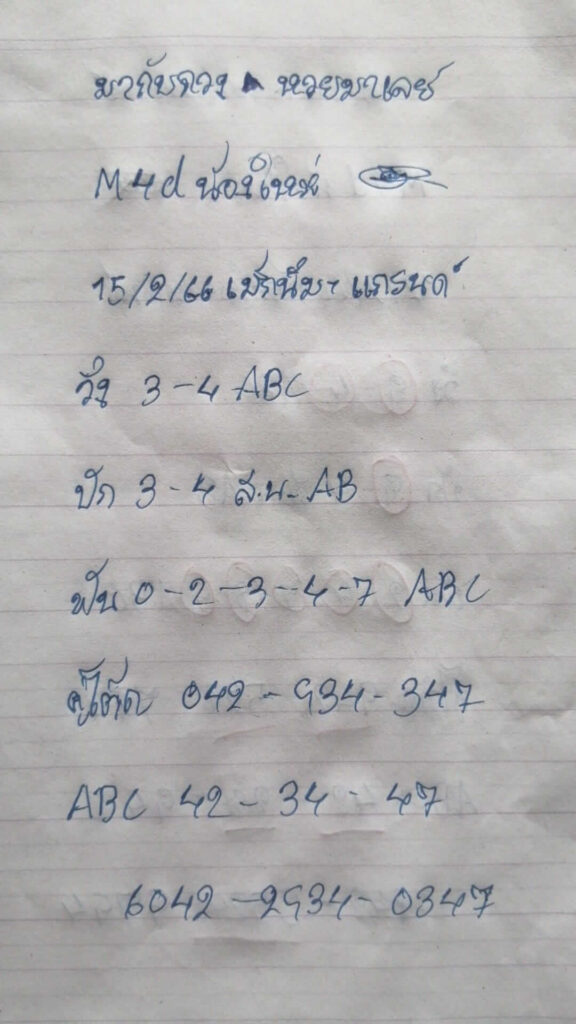 มากับดวง หวยมาเลย์
M4d น้องใหม่
15/2/66 เม็กนั่ม+ แกรนด์
วิ่ง 3-4 ABC
ปัก 3-4 ส.น. AB
ฟัน 0-2-3-4-7 ABC
042-934-347
ABC 42-34-47
6042-2934-0347